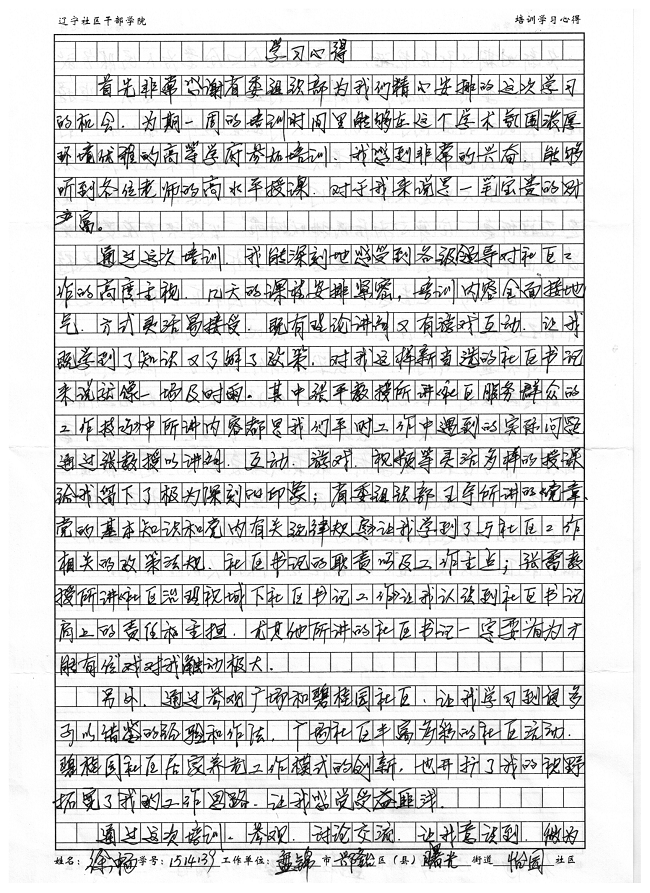 辽宁社区干部学院 培训学习心得
学习心得
首先非常感谢省委组织部为我们精心安排的这次学习
的机会。为期一周的培训时间里能够在这个学术氛围浓厚
环境优雅的高等学府参加培训，我感到非常的兴奋，能够
听到各位老师的高水平授课，对于我来说是一笔宝贵的财
富。
通过这次培训，我能深刻地感受到各级领导对社区工
作的高度重视，几天的课程安排紧密，培训内容全面接地
气，方式灵活易接受，既有理论讲词又有游戏互动，让我
既学到了知识又了解了政策，对我这样新当选的社区书记
来说就像一场及时雨。其中张平教授所讲社区服务群众的
工作技巧中所讲内容都是我们平时工作中遇到的实际问题
通过张教授以讲到、互动、游戏、视频等灵活多样的授课
给我留下了极为深刻的印象；省委组织部王宇所讲的党章
党的基本知识和党内有关法律规定让我学到了与社区工作
相关的政策法规、社区书记的职责以及工作重点；张雷教
授所讲社区治理视域下社区书记工作让我认识到社区书记
肩上的责任和重担，尤其他所讲的社区书记一定要有为才
能有位对我触动极大。
另外，通过参观广场和碧桂园社区，让我学习到很多
可以借鉴的经验和作法，广场社区丰富多彩的社区活动，
碧桂园社区居家养老工作模式的创新，也开拓了我的视野
拓宽了我的工作思路，让我感觉受益匪浅。
通过这次培训、参观、讨论交流，让我意识到，做为
姓名：徐 学号：1514139 工作单位：盘锦 市 兴隆台 区（县） 曙光 街道 怡园 社区